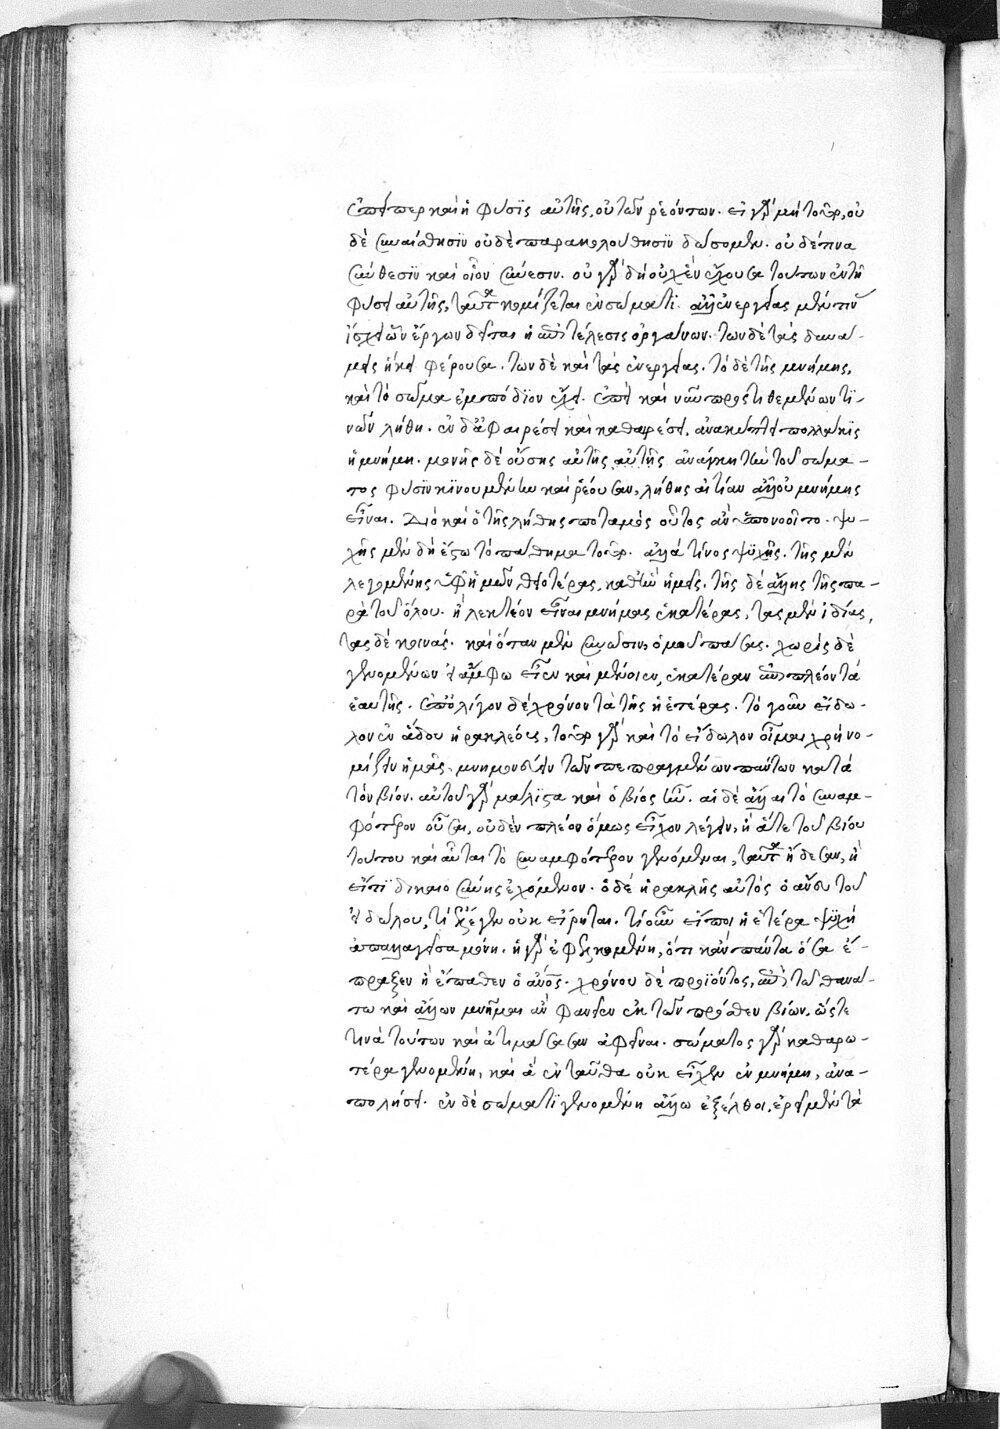 ἐπείπερ καὶ ἡ φύσις αὐτῆς, οὐ τῶν ῥεόντων. εἰ γὰρ μὴ τοῦτο, οὐ
δὲ συναίσθησιν οὐδὲ παρακολούθησιν δώσομεν. οὐδέ τινα
σύνθεσιν καὶ οἷον σύνεσιν. οὐ γὰρ δὴ οὐχ ἓν ἔχουσα τούτων ἐν τῇ
φύσει αὐτῆς, ταῦτα κομίζεται ἐν σώματι. ἀλλ' ἐνεργείας μέν τινας
ἴσχει ὧν ἔργων δεῖται ἡ ἀποτέλεσις ὀργάνων. τῶν δὲ τὰς δυνά-
μεις ἥκει φέρουσα. τῶν δὲ καὶ τὰς ἐνεργείας. τὸ δὲ τῆς μνήμης,
καὶ τὸ σῶμα ἐμπόδιον ἔχει. ἐπεὶ καὶ νῦν προστιθεμένων τι-
νῶν λήθη. ἐν δ' ἀφαιρέσει καὶ καθάρσει, ἀνακύπτει πολλάκις
ἡ μνήμη. μονῆς δὲ οὔσης αὐτῆς αὐτῆς ἀνάγκη τὴν τοῦ σώμα-
τος φύσιν κινουμένην καὶ ῥέουσαν, λήθης αἰτίαν ἀλλ' οὐ μνήμης
εἶναι. Διὸ καὶ ὁ τῆς λήθης ποταμὸς οὗτος ἂν ὑπονοοῖτο. ψυ-
χῆς μὲν δὴ ἔστω τὸ πάθημα τοῦτο. ἀλλὰ τίνος ψυχῆς. τῆς μὲν
λεγομένης ὑφ' ἡμῶν θειοτέρας, καθ' ἣν ἡμεῖς. τῆς δὲ ἄλλης τῆς πα-
ρὰ τοῦ ὅλου. ἢ λεκτέον εἶναι μνήμας ἑκατέρας, τὰς μὲν ἰδίας,
τὰς δὲ κοινάς. καὶ ὅταν μὲν συνῶσιν, ὁμοῦ πάσας. χωρὶς δὲ
γενομένων εἰ ἄμφω εἶεν καὶ μένοιεν, ἑκατέραν ἐπιπλέον τὰ
ἑαυτῆς. ἐπ' ὀλίγον δὲ χρόνον τὰ τῆς ἑτέρας. τὸ γοῦν εἴδω-
λον ἐν ᾅδου ἡρακλέους, τοῦτο γὰρ καὶ τὸ εἴδωλον οἶμαι χρὴ νο-
μίζειν ἡμᾶς. μνημονεύειν τῶν πεπραγμένων πάντων κατὰ
τὸν βίον. αὐτοῦ γὰρ μάλιστα καὶ ὁ βίος ἦν. αἱ δὲ ἄλλαι τὸ συναμ-
φότερον οὖσαι, οὐδὲν πλέον ὅμως εἶχον λέγειν, ἢ ἅτε τοῦ βίου
τούτου καὶ αὗται τὸ συναμφότερον γενόμεναι, ταῦτα ᾔδεσαν, ἢ
εἴ τι δικαιοσύνης ἐχόμενον. ὁ δὲ ἡρακλῆς αὐτὸς ὁ ἄνευ τοῦ
εἰδώλου, τί ἔλεγεν οὐκ εἴρηται. τί οὖν εἴποι ἡ ἑτέρα ψυχὴ
ἀπαλλαγεῖσα μόνη. ἡ γὰρ ἐφελκομένη, ὅτι κἂν πάντα ὅσα ἔ-
πραξεν ἢ ἔπαθεν ὁ ἄνθρωπος. χρόνου δὲ προϊόντος, ἐπὶ τῷ θανά-
τω καὶ ἄλλων μνῆμαι ἂν φανεῖεν ἐκ τῶν πρόσθεν βίων. ὥστε
τινὰ τούτων καὶ ἀτιμάσασαν ἀφεῖναι. σώματος γὰρ καθαρω-
τέρα γενομένη, καὶ ἃ ἐνταῦθα οὐκ εἶχεν ἐν μνήμη, ἀνα-
πολήσει. ἐν δὲ σώματι γενομένη ἄλλω ἐξέλθοι, ἐρεῖ μὲν τὰ